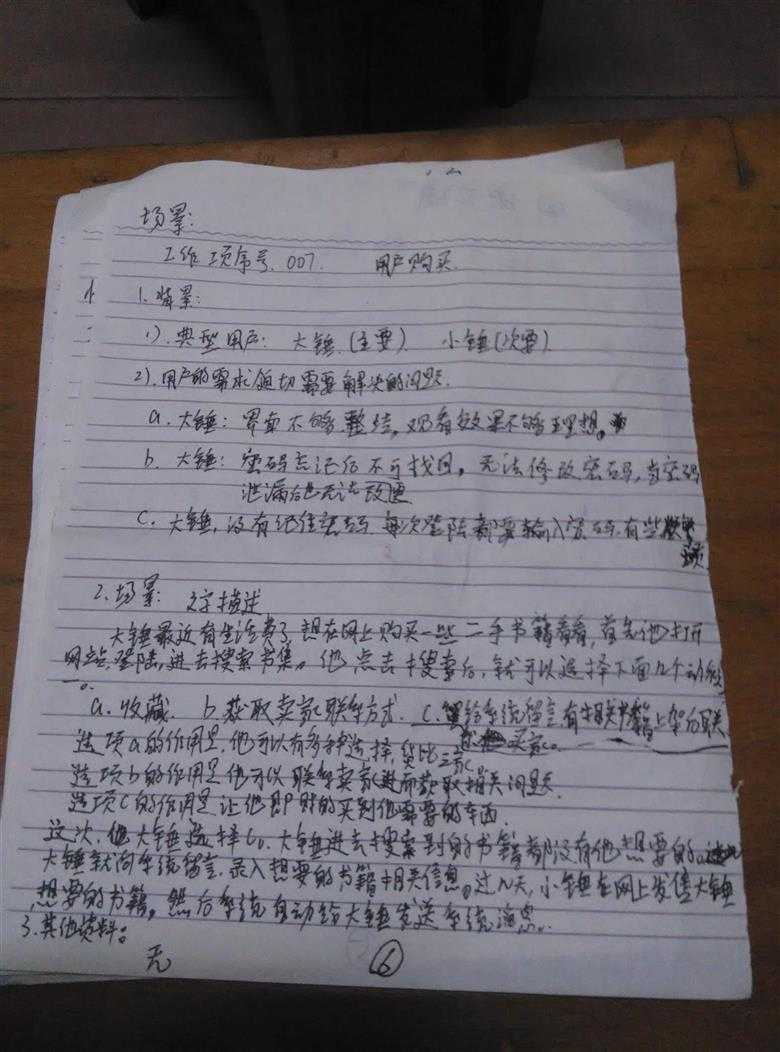 场景:
工作项序号. 007. 用户购买.
1. 背景:
1). 典型用户: 大锤.(主要) 小锤(次要)
2). 用户的需求/迫切需要解决的问题.
a. 大锤: 界面不够整洁, 观看效果不够理想。
b. 大锤: 密码忘记后不可找回, 无法修改密码, 当密码
泄漏后也无法改进
c. 大锤, 没有记住密码 每次登陆都要输入密码. 有些
2. 场景: 文字描述
大锤最近有生活费了 想在网上购买一些二手书籍看看, 首先他打开
网站, 登陆, 进去搜索书集。他点击搜索后, 就可以选择下面几个功能
一。
a. 收藏. b. 获取卖家联系方式. c. 给系统留言有相关书籍上架后联
系 买家。
选项a的作用是, 他可以有多种选择, 货比三家
选项b的作用是他可以联系卖家进而获取相关问题.
选项c的作用是让他即时的买到他需要的东西.
这次, 他大锤选择c。大锤进去搜索到的书籍都没有他想要的。
大锤就向系统留言, 录入想要的书籍相关信息。过N天, 小锤在网上发售大锤
想要的书籍。然后系统自动给大锤发送系统消息。
3. 其他资料:
无
6